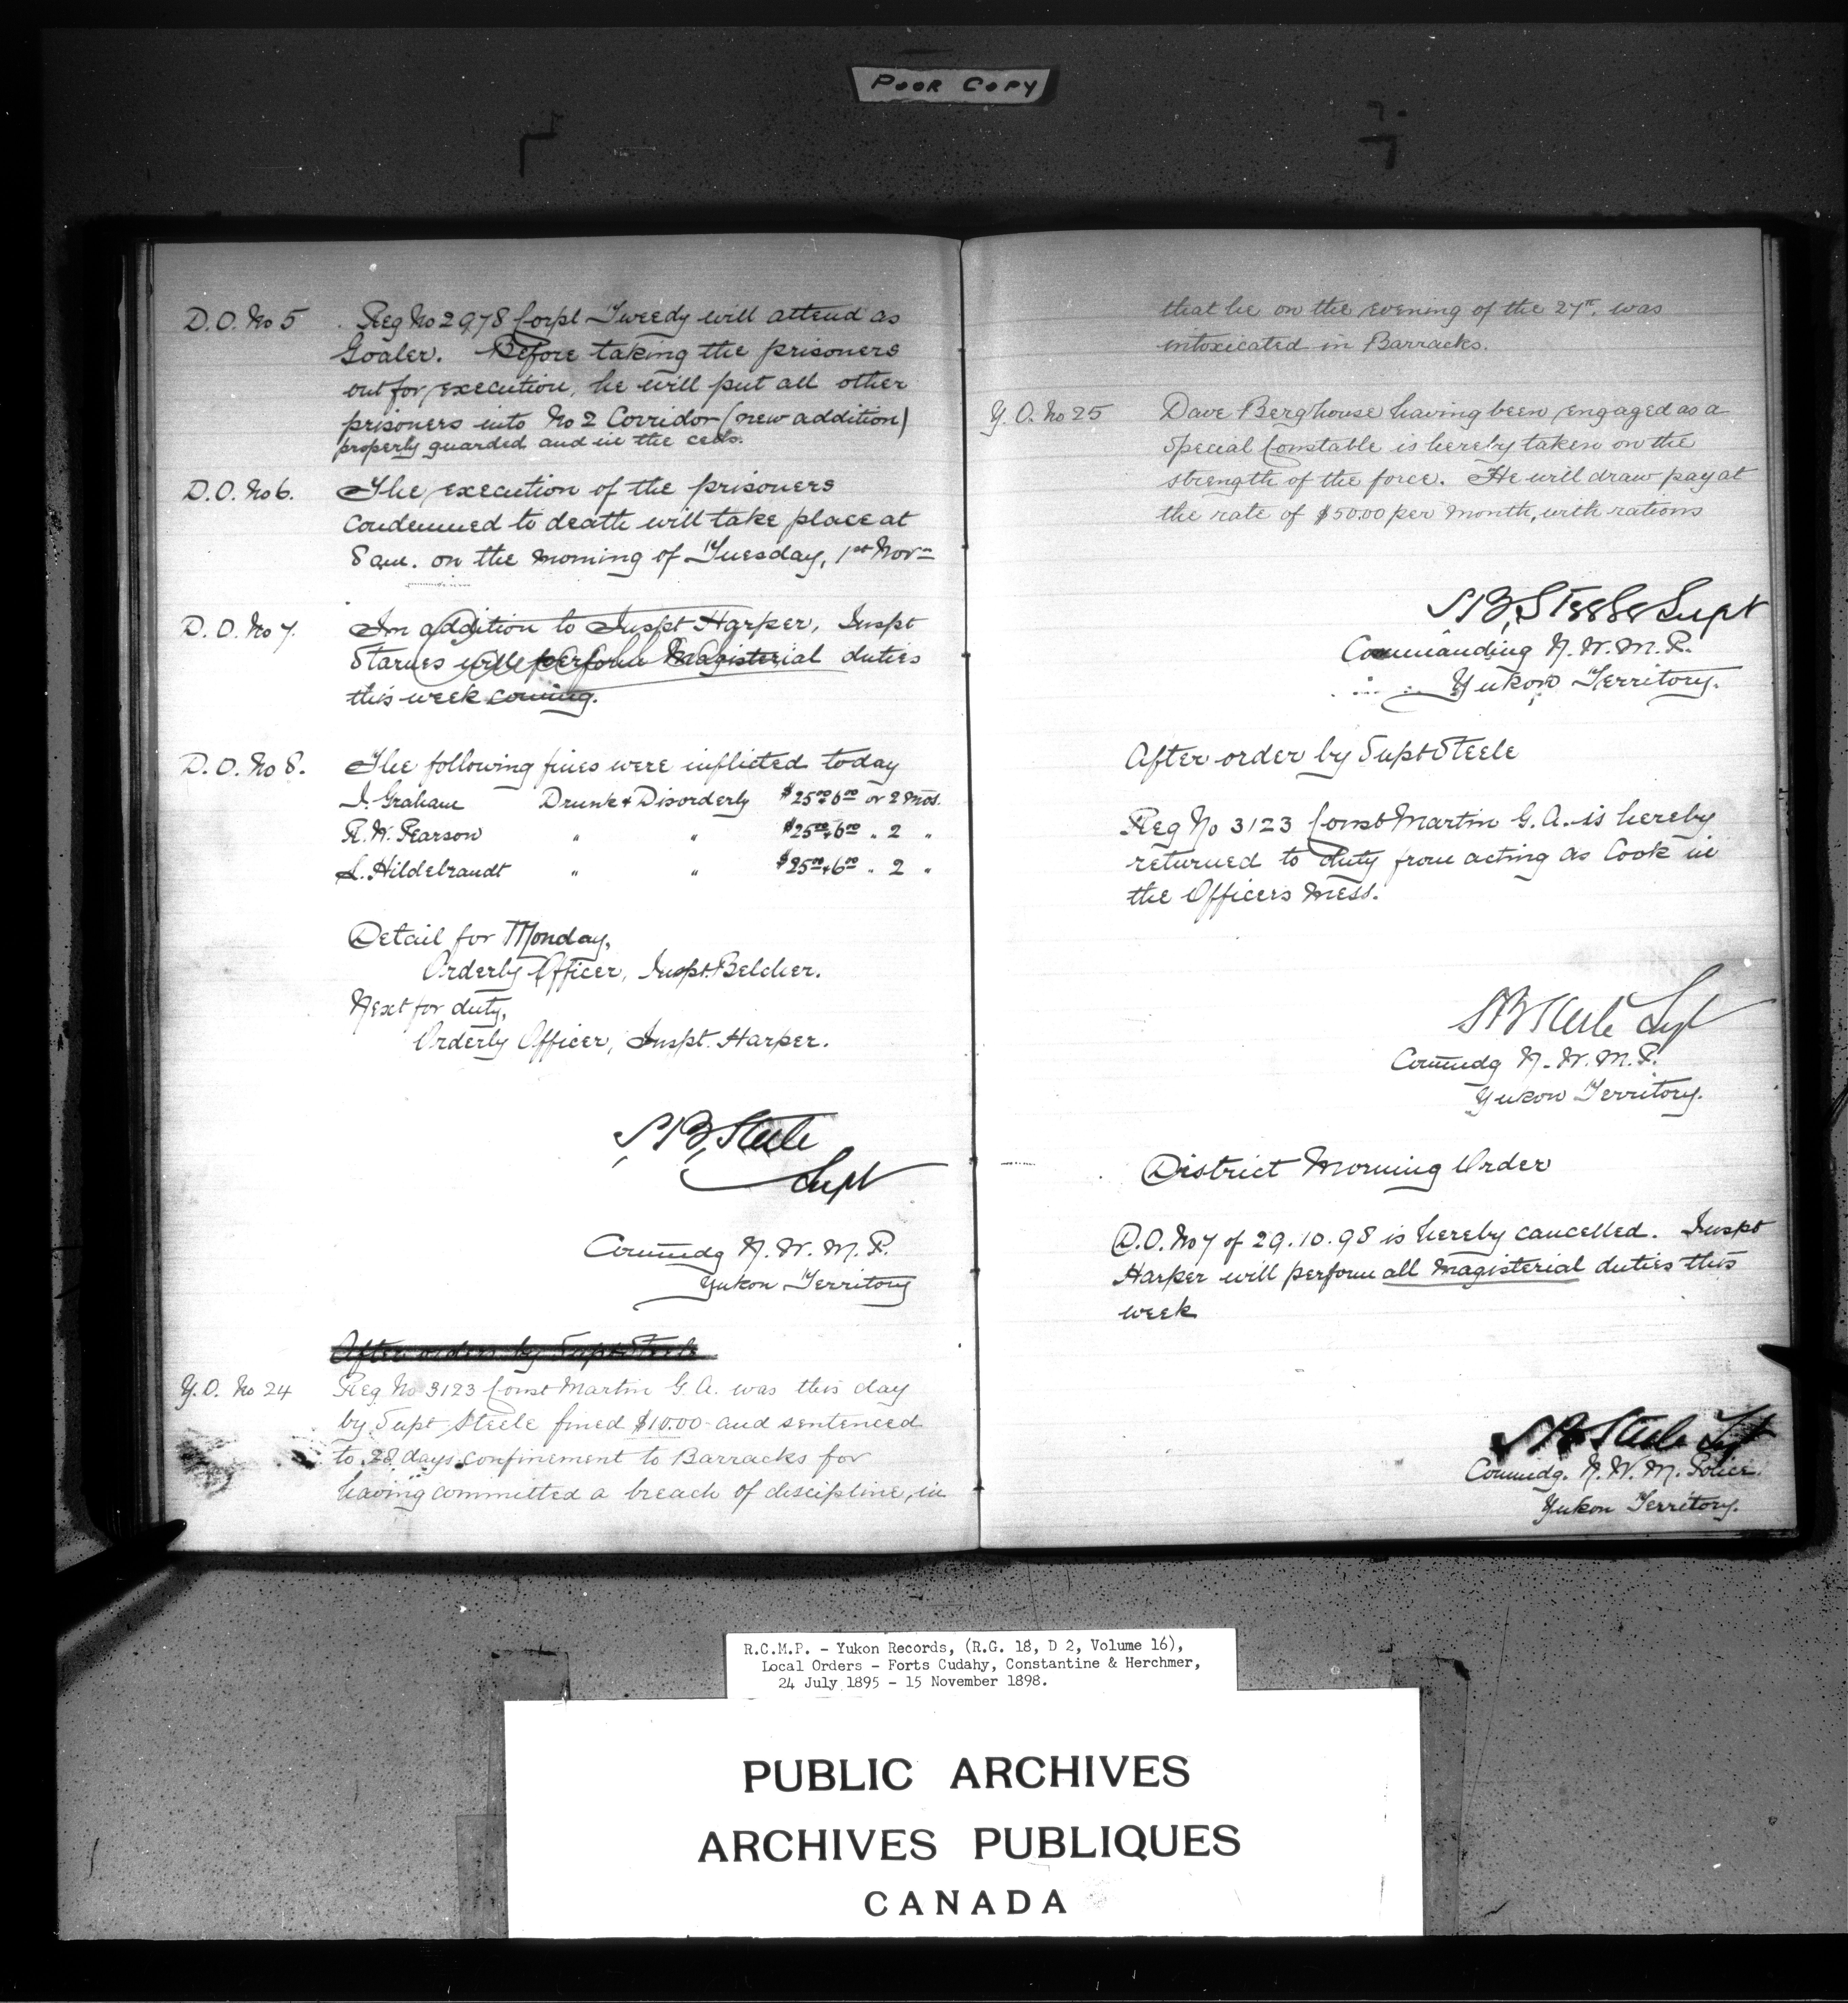 POOR COPY
D.O. No 5 . Reg No 2978 Corpl Tweedy will attend as
Goaler. Before taking the prisoners
out for execution, he will put all other
prisoners into No 2 Corridor (new addition)
properly guarded and in the cells.
D.O. No 6. The execution of the prisoners
condemned to death will take place at
8 am. on the morning of Tuesday, 1st Novr
D.O. No 7. In addition to Inspt Harper, Inspt
Starnes will perform Magisterial duties
this week coming.
D.O. No 8. The following fines were inflicted today
J. Graham Drunk & Disorderly $25.00 & 6.00 or 2 Mos.
R.W. Pearson " " $25.00 & 6.00 " 2 "
L. Hildebrandt " " $25.00 & 6.00 " 2 "
Detail for Monday,
Orderly Officer, Inspt. Belcher.
Next for duty,
Orderly Officer, Inspt. Harper.
S.B. Steele
Supt
Commdg N.W.M.P.
Yukon Territory
After orders by Supt Steele
Y.O. No 24 Reg No 3123 Const Martin G.A. was this day
by Supt Steele fined $10.00 and sentenced
to 28 days confinement to Barracks for
having committed a breach of discipline, in
that he on the evening of the 27th. was
intoxicated in Barracks.
Y.O. No 25 Dave Berghouse having been engaged as a
Special Constable is hereby taken on the
strength of the force. He will draw pay at
the rate of $50.00 per month, with rations
S.B. Steele Supt
Commanding N.W.M.P.
Yukon Territory.
After order by Supt Steele
Reg No 3123 Const Martin G.A. is hereby
returned to duty from acting as Cook in
the Officers Mess.
S B Steele Supt
Commdg N.W.M.P.
Yukon Territory.
District Morning Order
D.O. No 7 of 29.10.98 is hereby cancelled. Inspt
Harper will perform all Magisterial duties this
week
S B Steele Supt
Commdg. N.W.M. Police.
Yukon Territory.
R.C.M.P. - Yukon Records, (R.G. 18, D 2, Volume 16),
Local Orders - Forts Cudahy, Constantine & Herchmer,
24 July 1895 - 15 November 1898.
PUBLIC ARCHIVES
ARCHIVES PUBLIQUES
CANADA